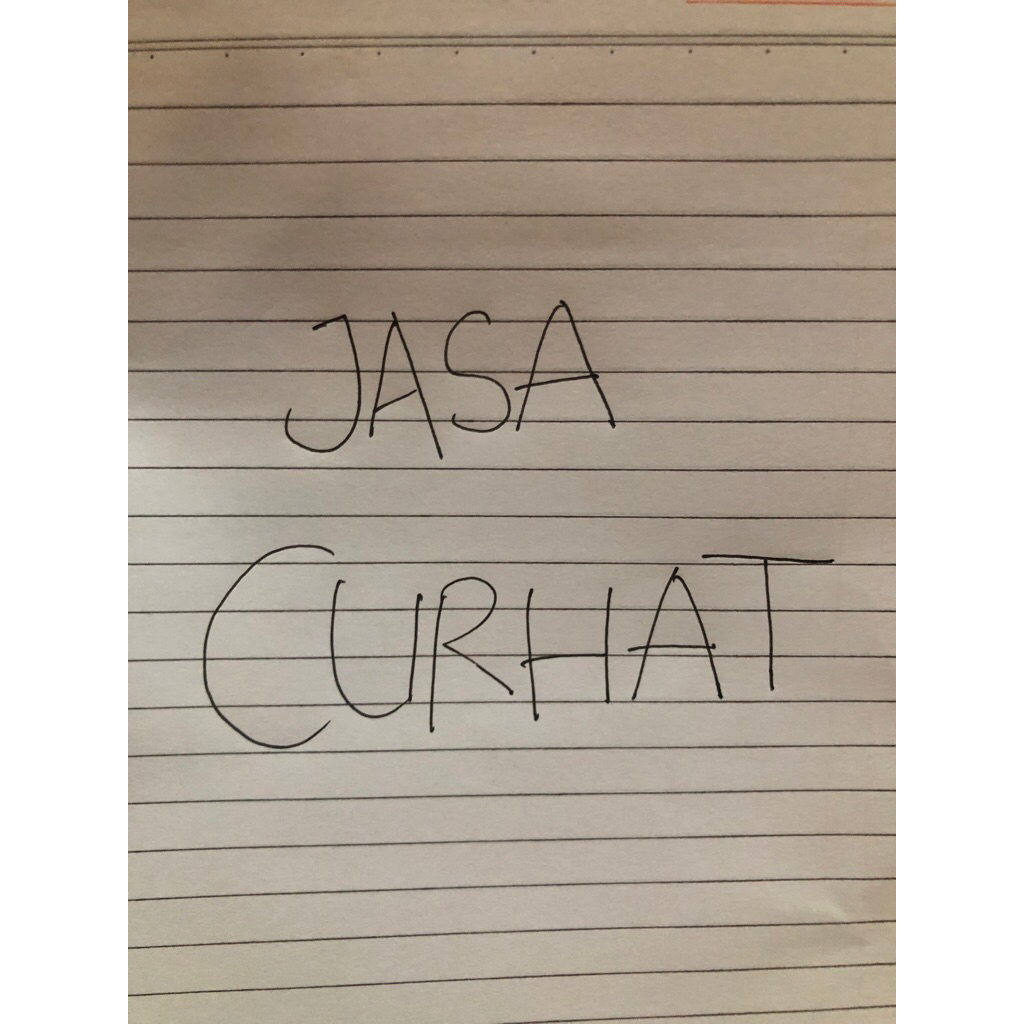 JASA
CURHAT